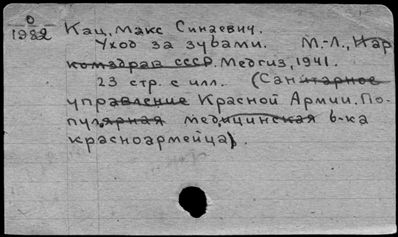 0
1982
Кац, Макс Синаевич.
Уход за зубами. М.-Л., Нар
комздрав СССР. Медгиз, 1941.
23 стр. с илл. (Санитарное
управление Красной Армии. По-
пулярная медицинская б-ка
красноармейца).